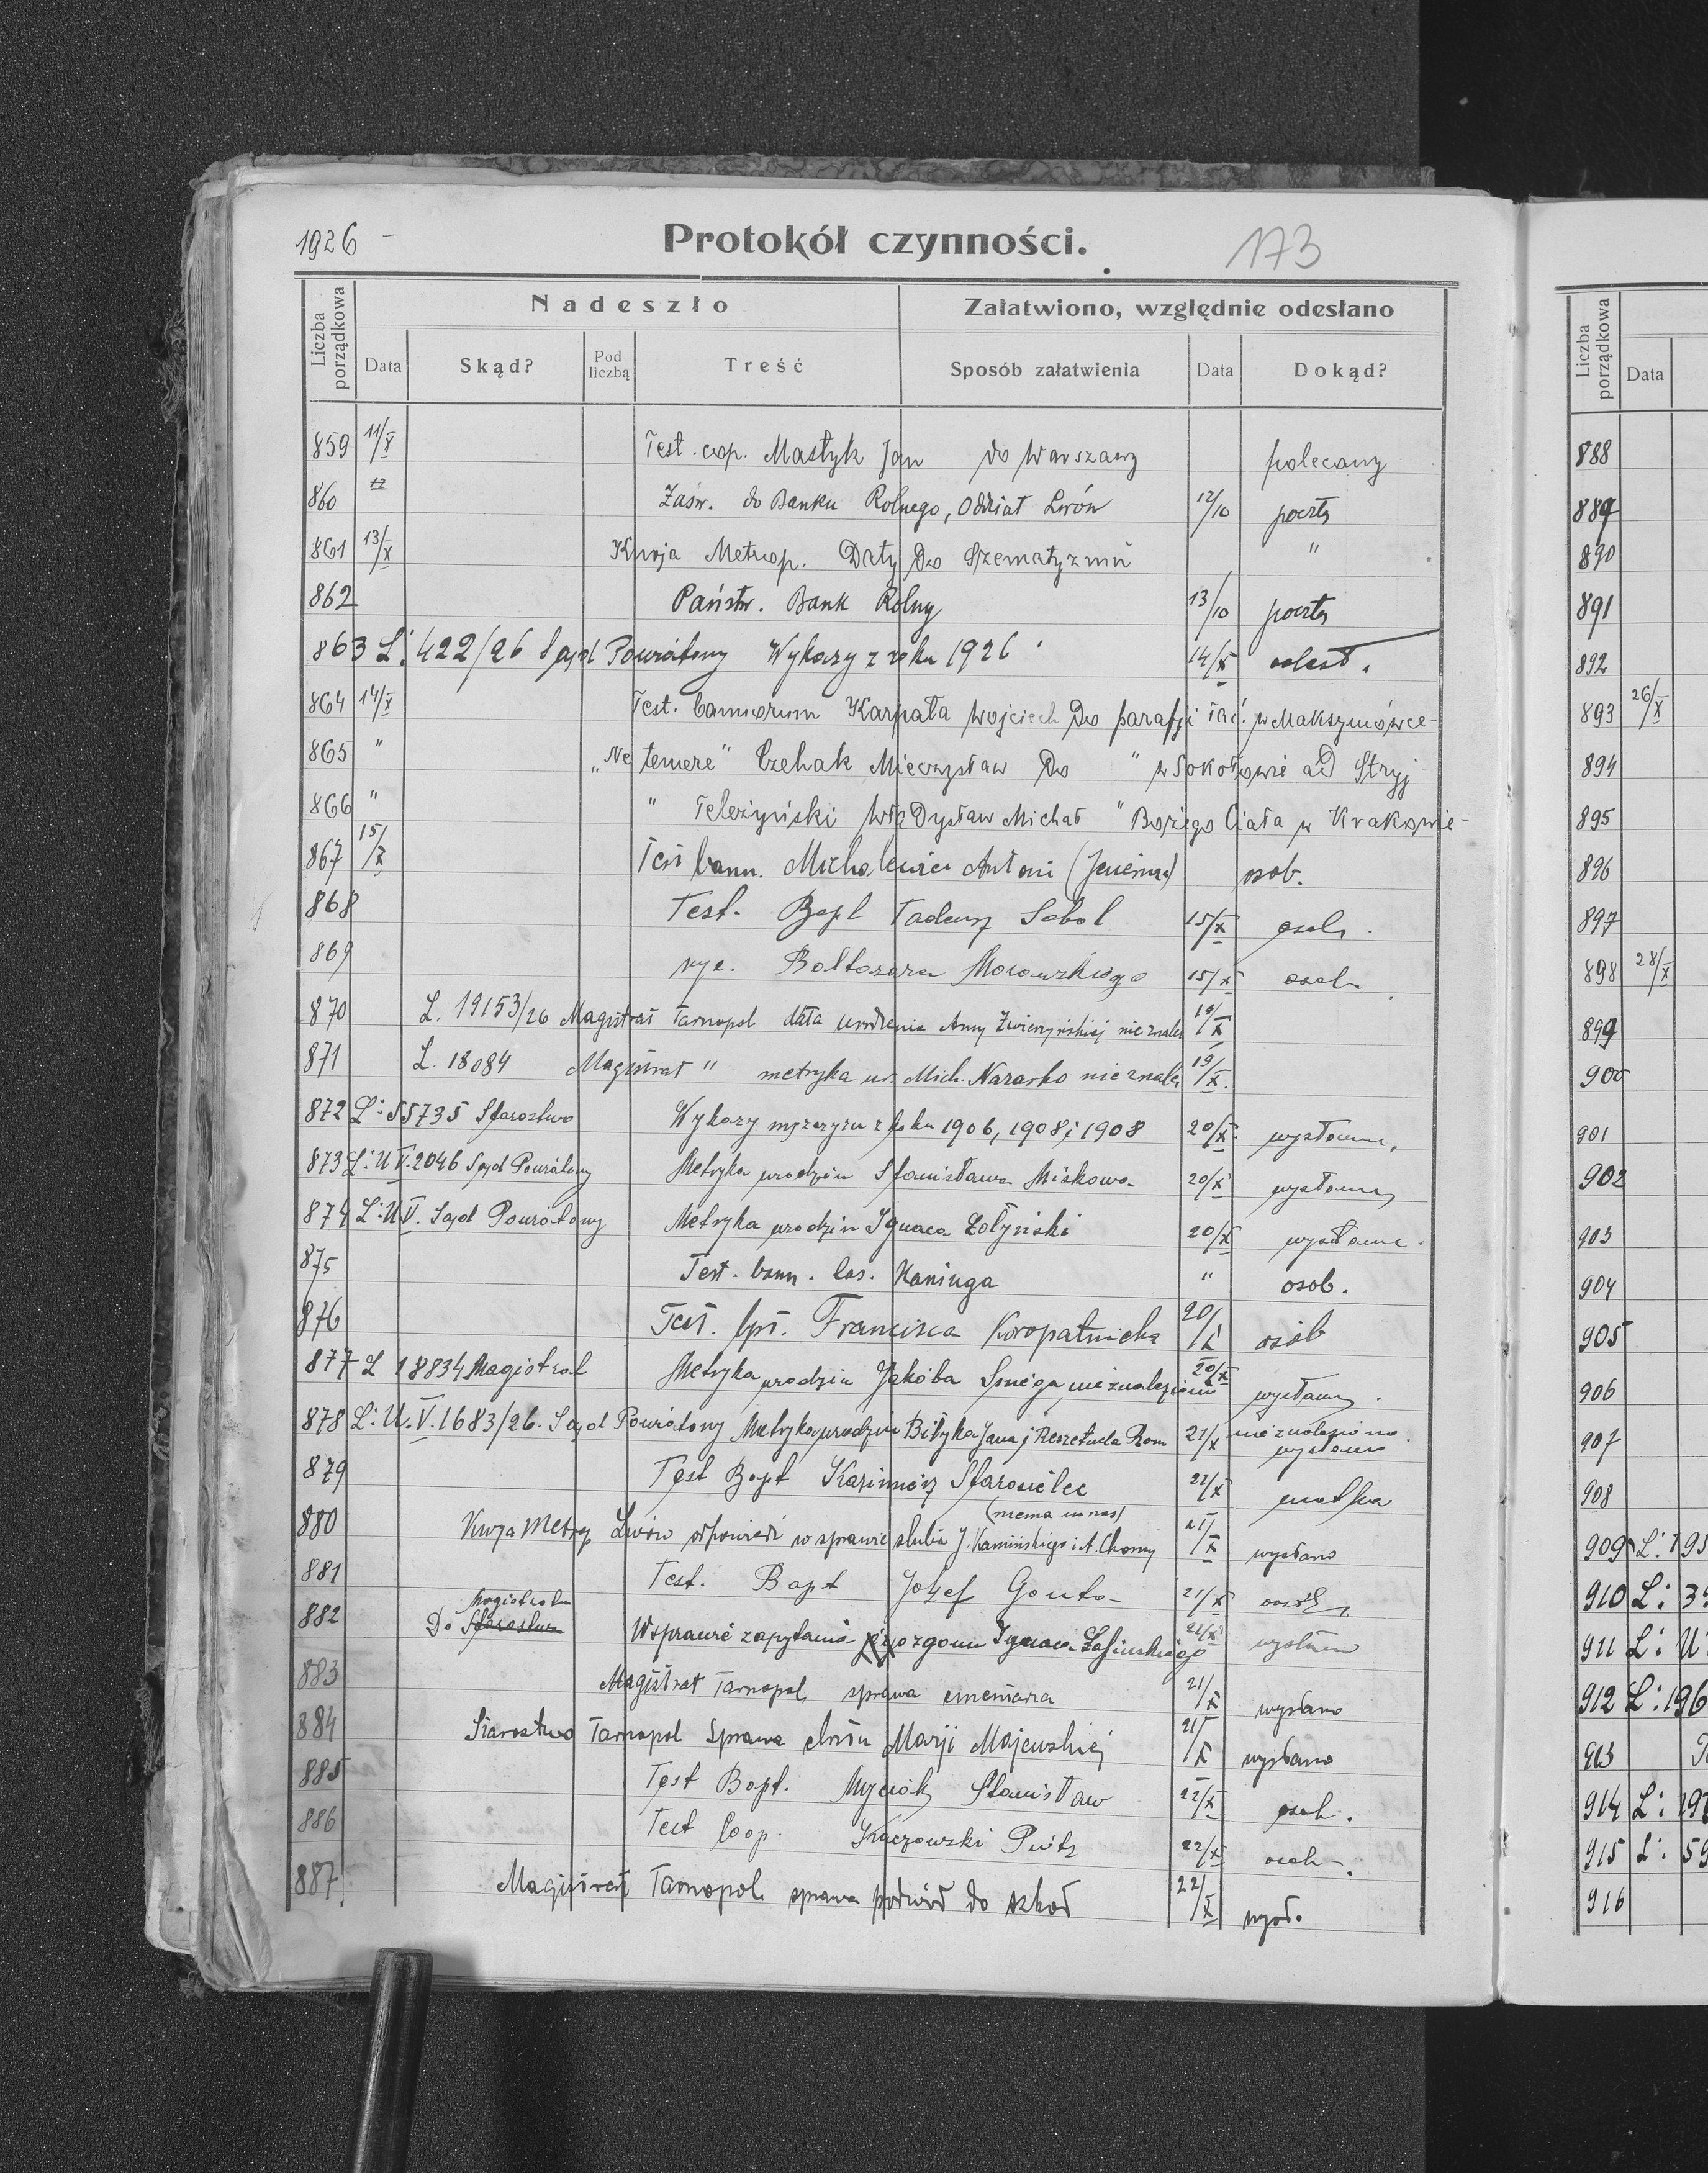 1926 -
Protokół czynności.
173
Liczba porządkowa
Nadeszło
Załatwiono, względnie odesłano
Data
Skąd?
Pod liczbą
Treść
Sposób załatwienia
Data
Dokąd?
859 11/X Test. cop. Mastyk Jan do Warszawy polecony
860 12 Zaśw. do Banku Rolnego, Oddział Lwów 12/10 poczta
861 13/X Kurja Metrop. Daty do Szematyzmu "
862 Państw. Bank Rolny 13/10 poczta
863 L: 422/26 Sąd Powiatowy Wykazy z roku 1926 14/X odesł.
864 14/X Test. bannorum Karpała Wojciech do parafji łać. w Maksymówce -
865 " „Ne temere" Czehak Mieczysław do " w Sokołowie ad Stryj -
866 " " Teleżyński Władysław Michał " Bożego Ciała w Krakowie -
867 15/X Test bann. Michalewicz Antoni osob.
868 Test. Bapt Tadeusz Sobol 15/X osob.
869 Baltazara Morawskiego 15/X osob
870 L. 19153/26 Magistrat Tarnopol data urodzenia Anny Zwierzyńskiej nie znalez 19/X
871 L. 18084 Magistrat " metryka ur. Mich. Narasko nie znalez 19/X.
872 L: 55735 Starostwo Wykazy mężczyzn z roku 1906, 1908 i 1908 20/X. wysłano.
873 L: U V. 2046 Sąd Powiatowy Metryka urodzin Stanisława Miskowa 20/X wysłano
874 L: U V. Sąd Powiatowy Metryka urodzin Ignaca Żołyński 20/X wysłano.
875 Test. bann. Cas. Kaninga " osob.
876 Test. bpt. Francisca Koropatnicka 20/X osob
877 L 18834 Magistrat Metryka urodzin Jakóba Smiga nie znaleziono 20/X wysłano.
878 L: U. V. 1683/26. Sąd Powiatowy Metryka urodzin Biłyka Jana i Reszetucha Rom 21/X nie znaleziono.
wysłano
879 Test Bapt Kazimierz Starosielec 22/X matka
(niema u nas)
880 Kurja Metrop Lwów odpowiedź w sprawie ślubu J. Kamińskiego i A. Chomy 21/X wysłano
881 Test. Bapt Józef Gonta 21/X osob.
Magistratu
882 Do Starostwa W sprawie zapytania o zgonu Ignaca 21/X wysłano
883 Magistrat Tarnopol sprawa cmentarza 21/X wysłano
884 Starostwo Tarnopol Sprawa chrztu Marji Majewskiej 21/X wysłano
885 Test Bapt. Stanisław 22/X osob.
886 Test Coop. Kaczowski Piotr 22/X osob.
887. Magistrat Tarnopol sprawa podwód do szkół 22/X wysł.
Liczba porządkowa
Data
888
889
890
891
892
893 26/X
894
895
896
897
898 28/X
899
900
901
902
903
904
905
906
907
908
909 L: 195
910 L: 3
911 L: U
912 L: 196
913
914 L: 19
915 L: 59
916